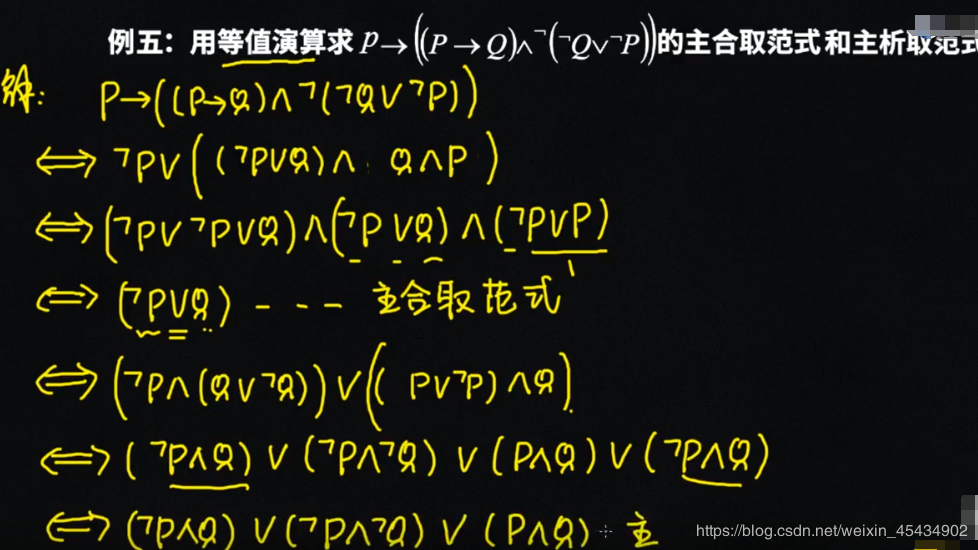 例五：用等值演算求 P→((P→Q)∧¬(¬Q∨¬P))的主合取范式和主析取范式
解： P→((P→Q)∧¬(¬Q∨¬P))
⇔ ¬P∨((¬P∨Q)∧ Q∧P)
⇔ (¬P∨¬P∨Q)∧(¬P∨Q)∧(¬P∨P)
1
⇔ (¬P∨Q) --- 主合取范式
⇔ (¬P∧(Q∨¬Q))∨((P∨¬P)∧Q)
⇔ (¬P∧Q)∨(¬P∧¬Q)∨(P∧Q)∨(¬P∧Q)
⇔ (¬P∧Q)∨(¬P∧¬Q)∨(P∧Q) 主
https://blog.csdn.net/weixin_45434902